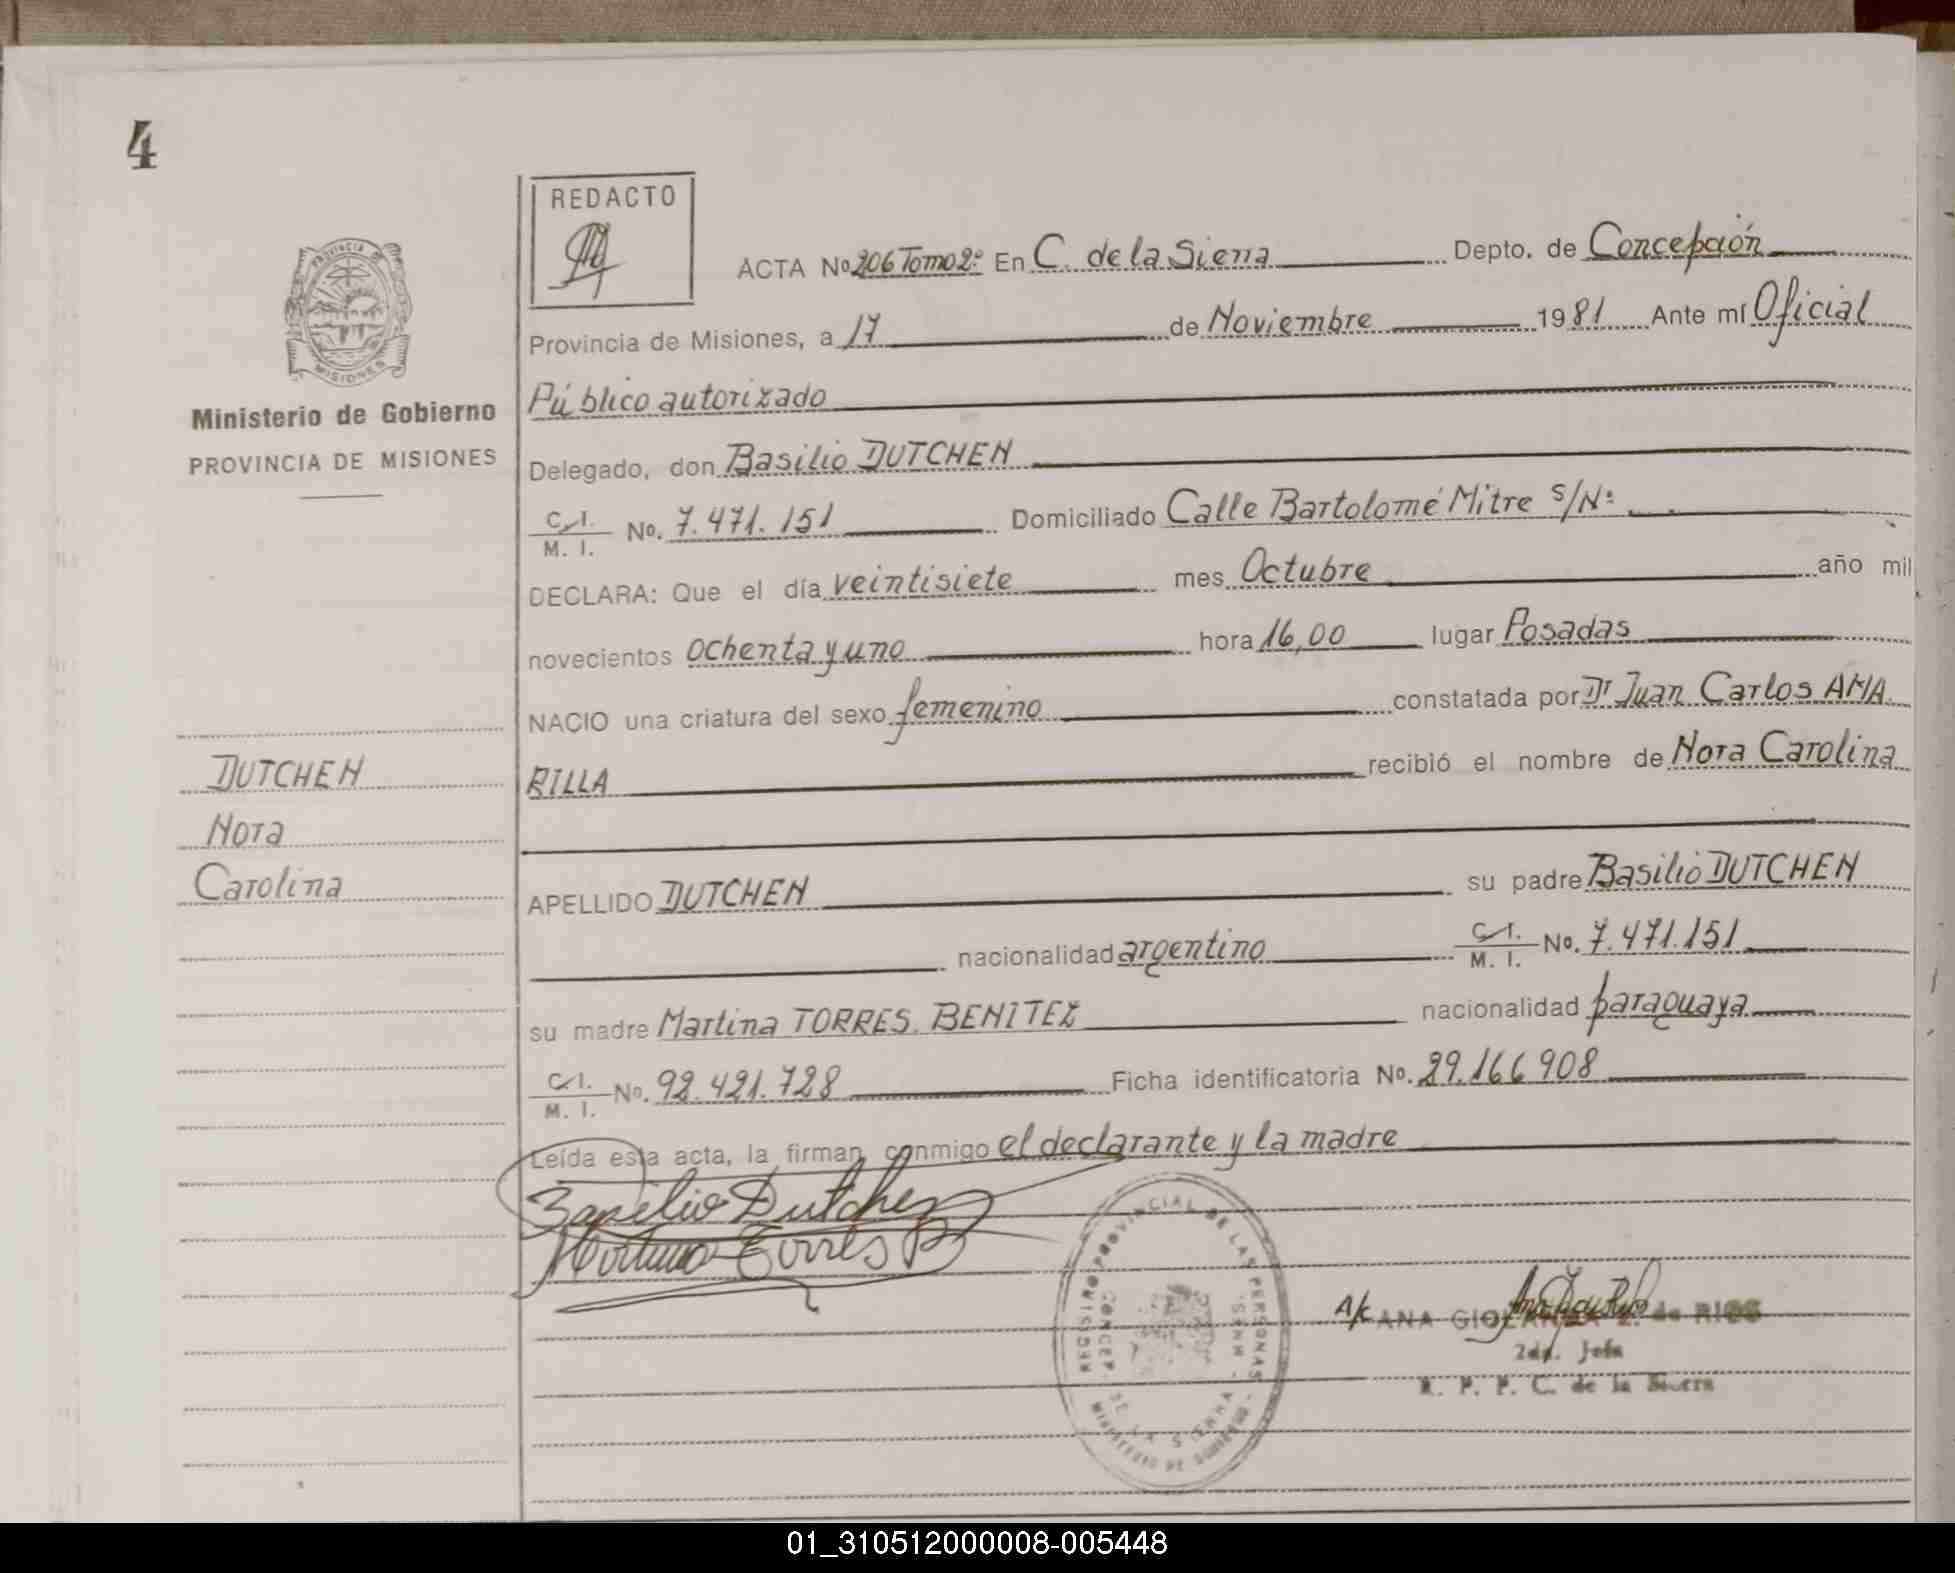 4
REDACTO
ACTA No 206 Tomo 2º En C. de la Sierra Depto. de Concepción
Provincia de Misiones, a 17 de Noviembre 1981 Ante mí Oficial
Público autorizado
PROVINCIA DE
MISIONES
Ministerio de Gobierno
PROVINCIA DE MISIONES
Delegado, don Basilio DUTCHEN
C. I.
M. I. No. 7.471.151 Domiciliado Calle Bartolomé Mitre s/Nº
DECLARA: Que el día veintisiete mes Octubre año mil
novecientos ochenta y uno hora 16,00 lugar Posadas
NACIO una criatura del sexo femenino constatada por Dr Juan Carlos AMA
RILLA recibió el nombre de Nora Carolina
DUTCHEN
Nora
Carolina
APELLIDO DUTCHEN su padre Basilio DUTCHEN
nacionalidad argentino C. I.
M. I. No. 7.471.151
su madre Martina TORRES BENITEZ nacionalidad paraguaya
C. I.
M. I. No. 92.421.728 Ficha identificatoria No. 29.166908
Leída esta acta, la firman conmigo el declarante y la madre
Basilio Dutchen
Martina Torres B
REGISTRO PROVINCIAL DE LAS PERSONAS
CONCEP. DE LA SIERRA
MINISTERIO DE GOBIERNO
A/c ANA de RIOS
2da. Jefa
R. P. P. C. de la Sierra
01_310512000008-005448